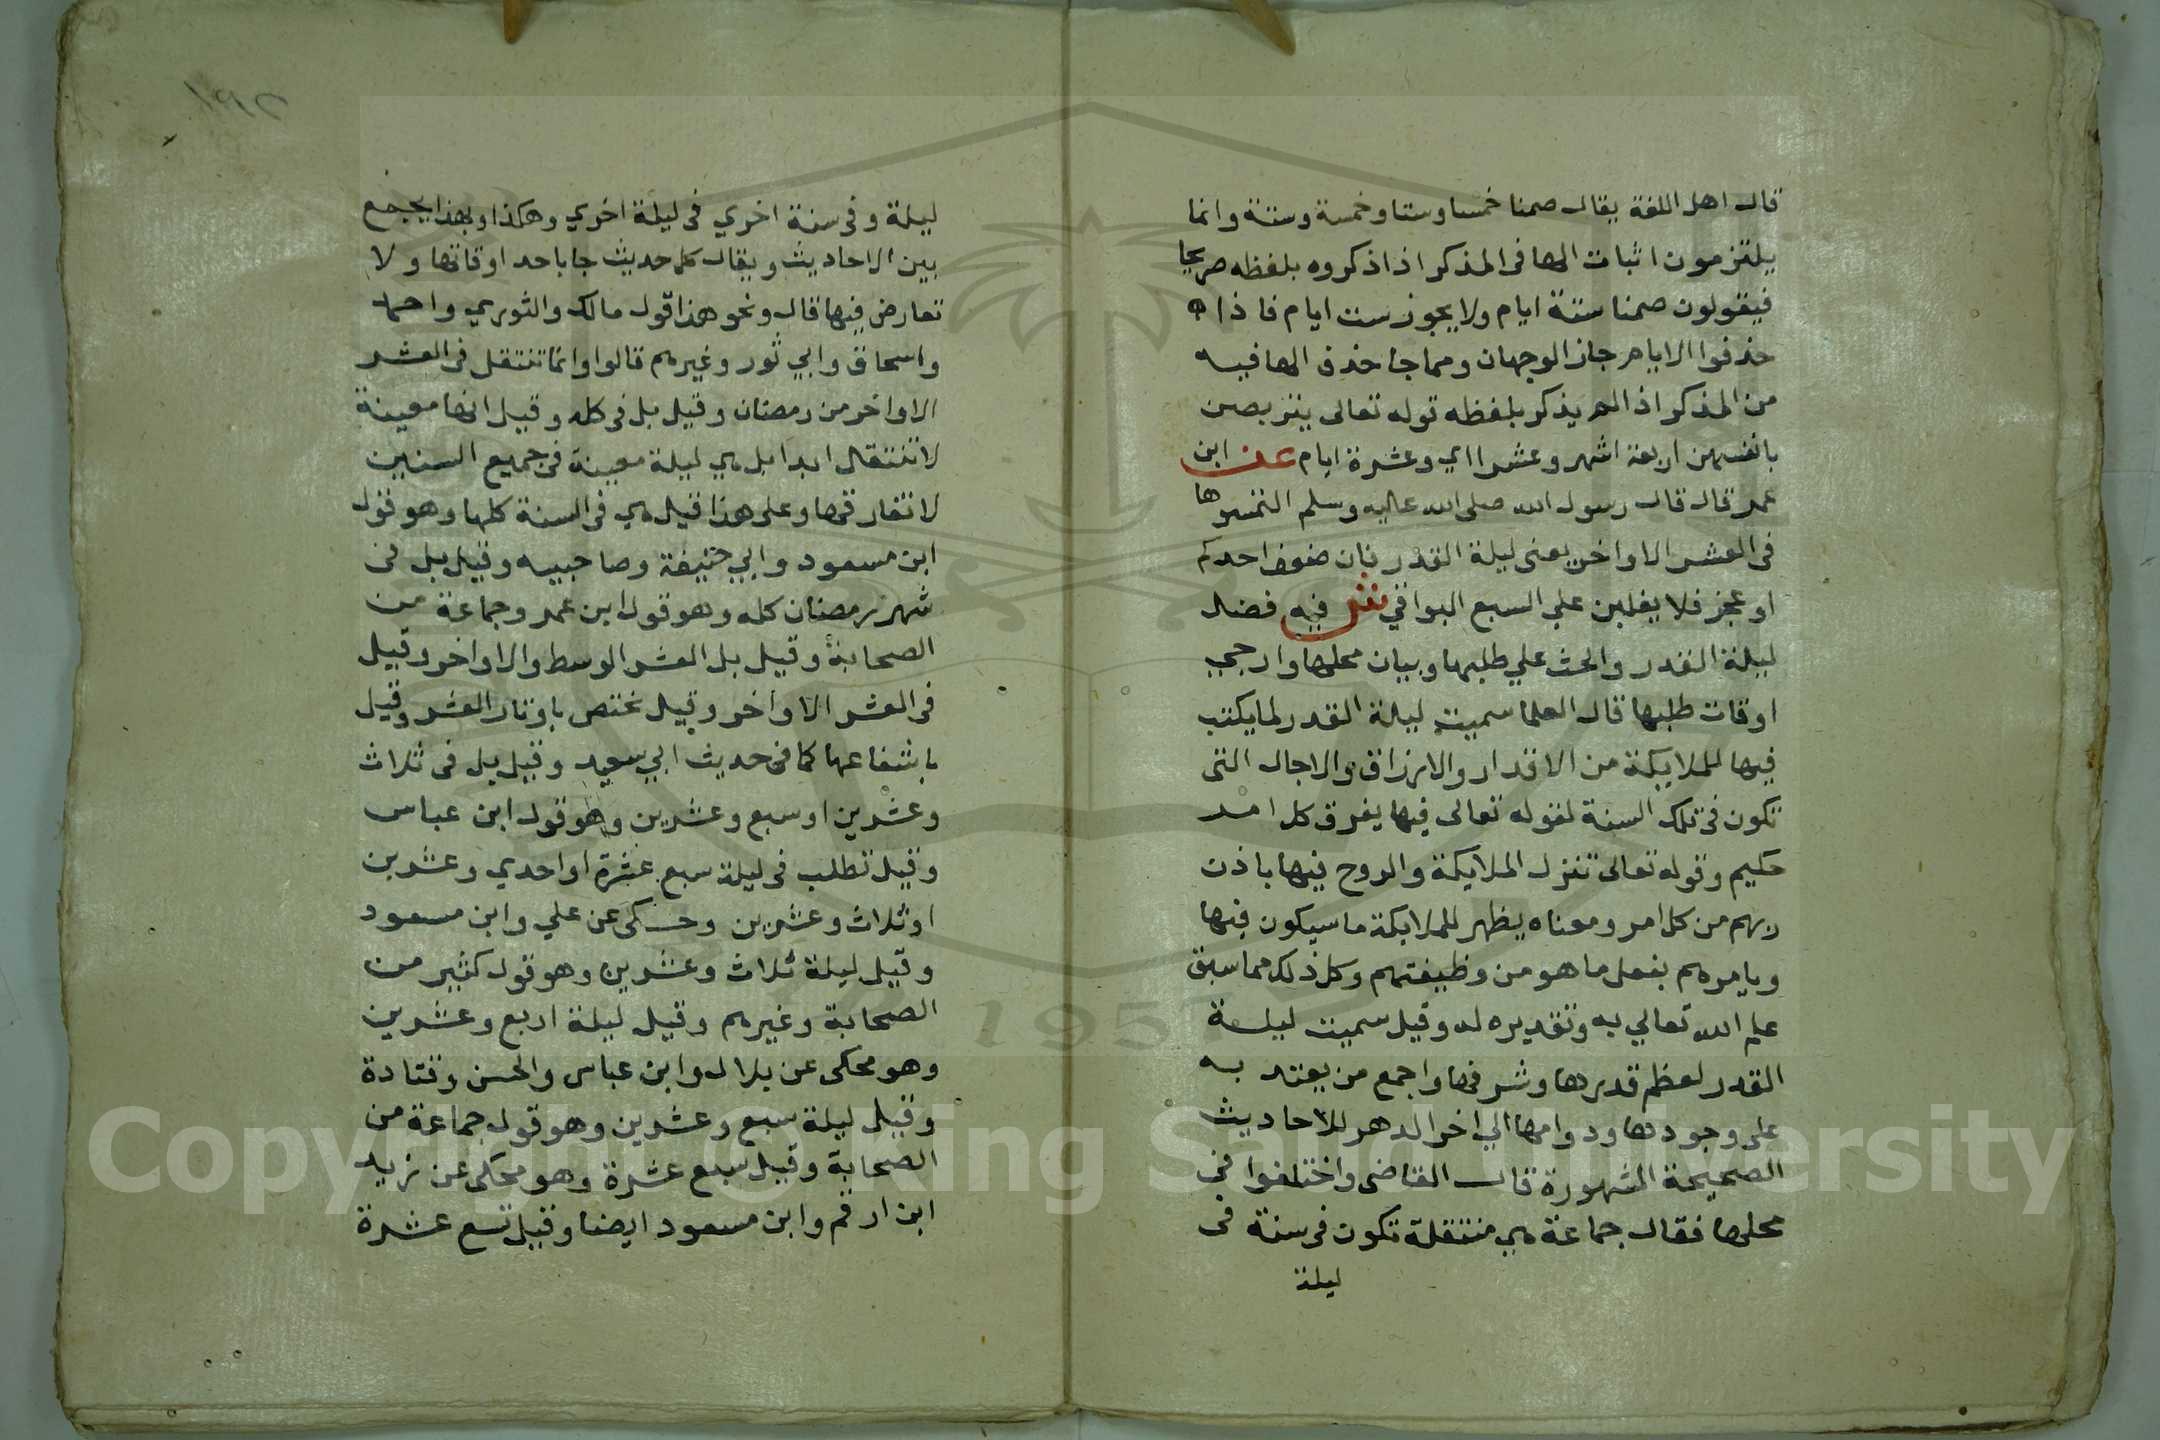 قال اهل اللغة يقال صمنا خمسا وستا وخمسة وستة وانما
يلتزمون اثبات الها فى المذكر اذا ذكروه بلفظه صريحا
فيقولون صمنا ستة ايام ولا يجوز ست ايام فاذا
حذفوا الايام جاز الوجهان ومما جا حذف الها فيه
من المذكر اذا لم يذكر بلفظه قوله تعالى يتربصن
بانفسهن اربعة اشهر وعشرا اي وعشرة ايام عن ابن
عمر قال قال رسول الله صلى الله عليه وسلم التمسوها
فى العشر الاواخر يعنى ليلة القدر فان ضعف احدكم
او عجز فلا يغلبن علي السبع البواقي ش فيه فضل
ليلة القدر والحث علي طلبها وبيان محلها وارجي
اوقات طلبها قال العلما سميت ليلة القدر لما يكتب
فيها للملايكة من الاقدار والارزاق والاجال التى
تكون فى تلك السنة لقوله تعالى فيها يفرق كل امر
حكيم وقوله تعالى تنزل الملايكة والروح فيها باذن
ربهم من كل امر ومعناه يظهر للملايكة ما سيكون فيها
ويامرهم بفعل ما هو من وظيفتهم وكل ذلك مما سبق
علم الله تعالي به وتقديره له وقيل سميت ليلة
القدر لعظم قدرها وشرفها واجمع من يعتد به
على وجودها ودوامها الي اخر الدهر للاحاديث
الصحيحة المشهورة قال القاضى واختلفوا فى
محلها فقال جماعة هي منتقلة تكون فى سنة فى
ليلة
١٩٢
ليلة وفى سنة اخري فى ليلة اخري وهكذا وبهذا يجمع
بين الاحاديث ويقال كل حديث جا باحد اوقاتها ولا
تعارض فيها قال ونحو هذا قول مالك والثوري واحمد
واسحاق وابي ثور وغيرهم قالوا وانما تنتقل فى العشر
الاواخر من رمضان وقيل بل فى كله وقيل انها معينة
لا تنتقل ابدا بل هي ليلة معينة فى جميع السنين
لا تفارقها وعلى هذا قيل هي فى السنة كلها وهو قول
ابن مسعود وابي حنيفة وصاحبيه وقيل بل فى
شهر رمضان كله وهو قول ابن عمر وجماعة من
الصحابة وقيل بل العشر الوسط والاواخر وقيل
فى العشر الاواخر وقيل تختص باوتار العشر وقيل
باشفاعها كما فى حديث ابي سعيد وقيل بل فى ثلاث
وعشرين او سبع وعشرين وهو قول ابن عباس
وقيل تطلب فى ليلة سبع عشرة او احدي وعشرين
او ثلاث وعشرين وحكى عن علي وابن مسعود
وقيل ليلة ثلاث وعشرين وهو قول كثير من
الصحابة وغيرهم وقيل ليلة اربع وعشرين
وهو محكى عن بلال وابن عباس والحسن وقتادة
وقيل ليلة سبع وعشرين وهو قول جماعة من
الصحابة وقيل سبع عشرة وهو محكى عن زيد
ابن ارقم وابن مسعود ايضا وقيل تسع عشرة
1957
Copyright © King Saud University